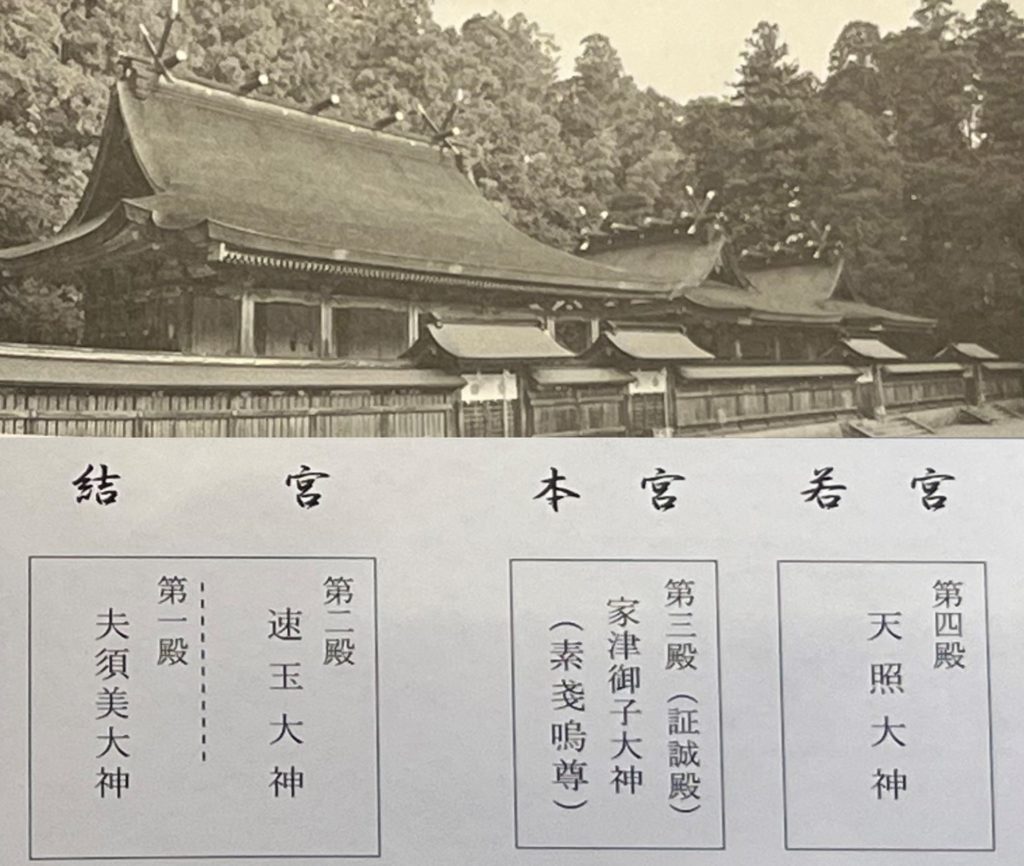 結宮
第二殿
速玉大神
第一殿
夫須美大神
本宮
第三殿（証誠殿）
家津御子大神
（素戔嗚尊）
若宮
第四殿
天照大神